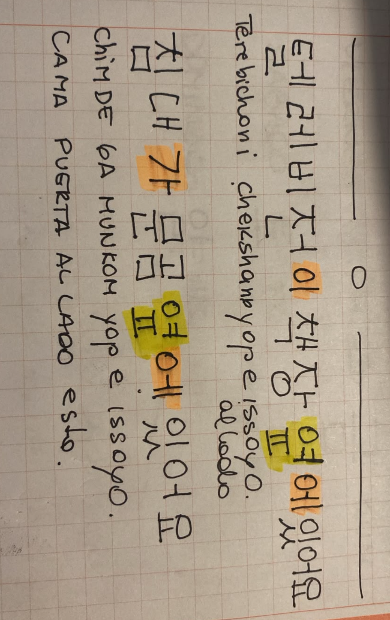 텔레비전이 책장 옆에 있어요
Terebichoni chekshankyope issoyo.
al lado
침대가 문곰 옆에 있어요
chim DE GA MUNKOM yope issoyo.
CAMA PUERTA AL LADO esta.